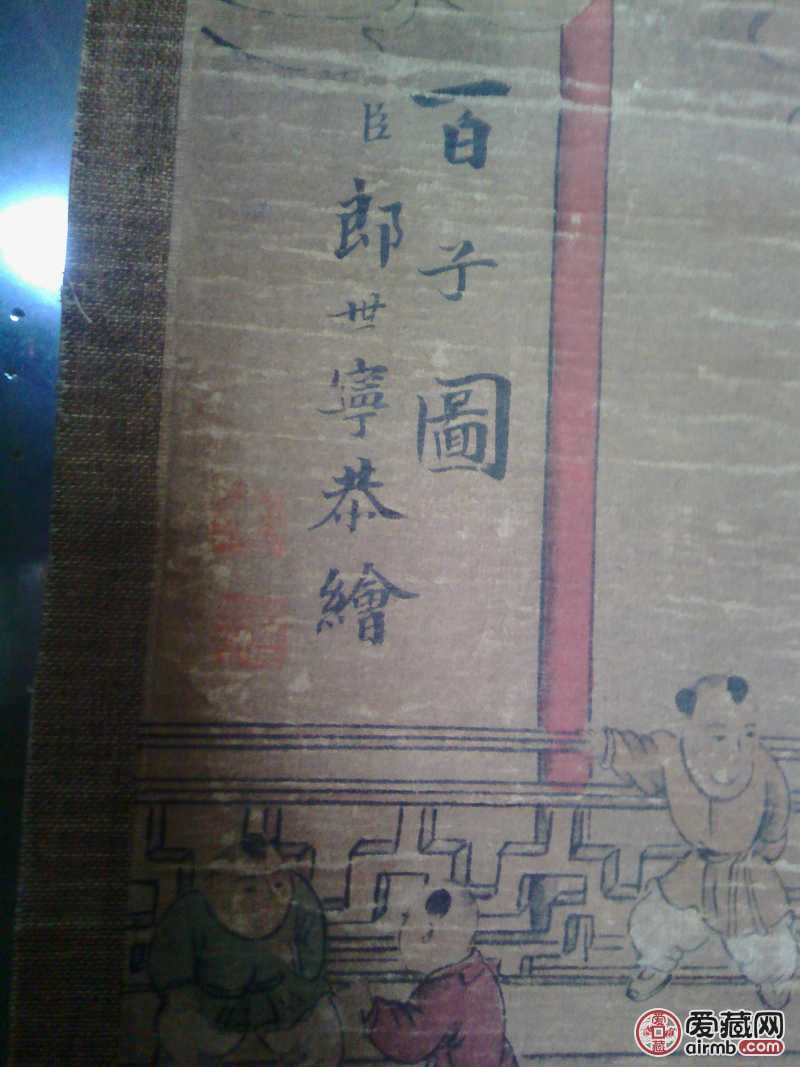 百子圖
臣郎世寧恭繪
爱藏网
airmb.com